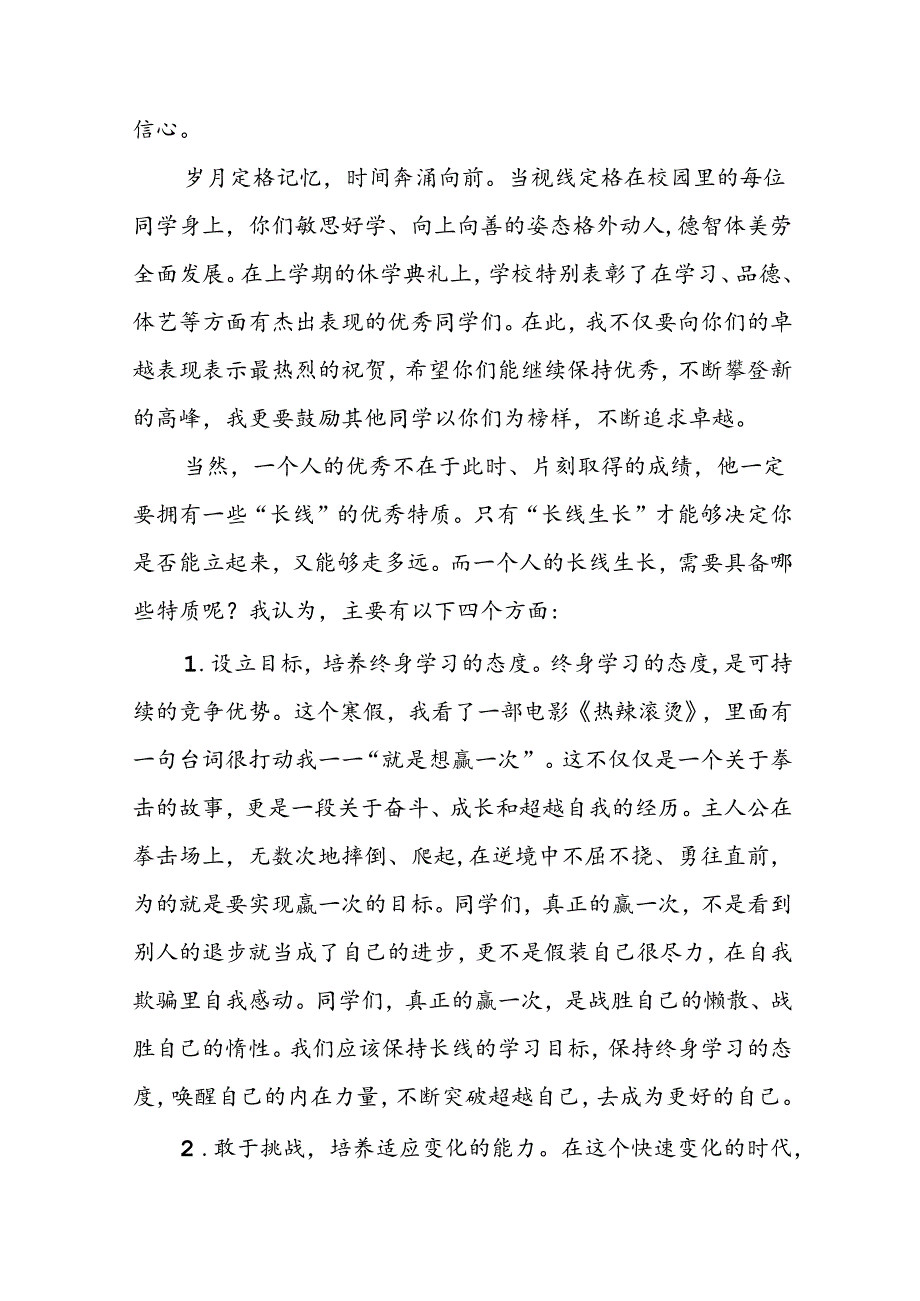 信心。
岁月定格记忆，时间奔涌向前。当视线定格在校园里的每位
同学身上，你们敏思好学、向上向善的姿态格外动人,德智体美劳
全面发展。在上学期的休学典礼上,学校特别表彰了在学习、品德、
体艺等方面有杰出表现的优秀同学们。在此,我不仅要向你们的卓
越表现表示最热烈的祝贺,希望你们能继续保持优秀,不断攀登新
的高峰，我更要鼓励其他同学以你们为榜样，不断追求卓越。
当然，一个人的优秀不在于此时、片刻取得的成绩，他一定
要拥有一些“长线”的优秀特质。只有“长线生长”才能够决定你
是否能立起来，又能够走多远。而一个人的长线生长，需要具备哪
些特质呢？我认为，主要有以下四个方面：
1.设立目标，培养终身学习的态度。终身学习的态度,是可持
续的竞争优势。这个寒假，我看了一部电影《热辣滚烫》，里面有
一句台词很打动我一一“就是想赢一次”。这不仅仅是一个关于拳
击的故事，更是一段关于奋斗、成长和超越自我的经历。主人公在
拳击场上，无数次地摔倒、爬起,在逆境中不屈不挠、勇往直前，
为的就是要实现赢一次的目标。同学们，真正的赢一次，不是看到
别人的退步就当成了自己的进步，更不是假装自己很尽力，在自我
欺骗里自我感动。同学们，真正的赢一次，是战胜自己的懒散、战
胜自己的惰性。我们应该保持长线的学习目标,保持终身学习的态
度,唤醒自己的内在力量,不断突破超越自己,去成为更好的自己。
2.敢于挑战，培养适应变化的能力。在这个快速变化的时代,